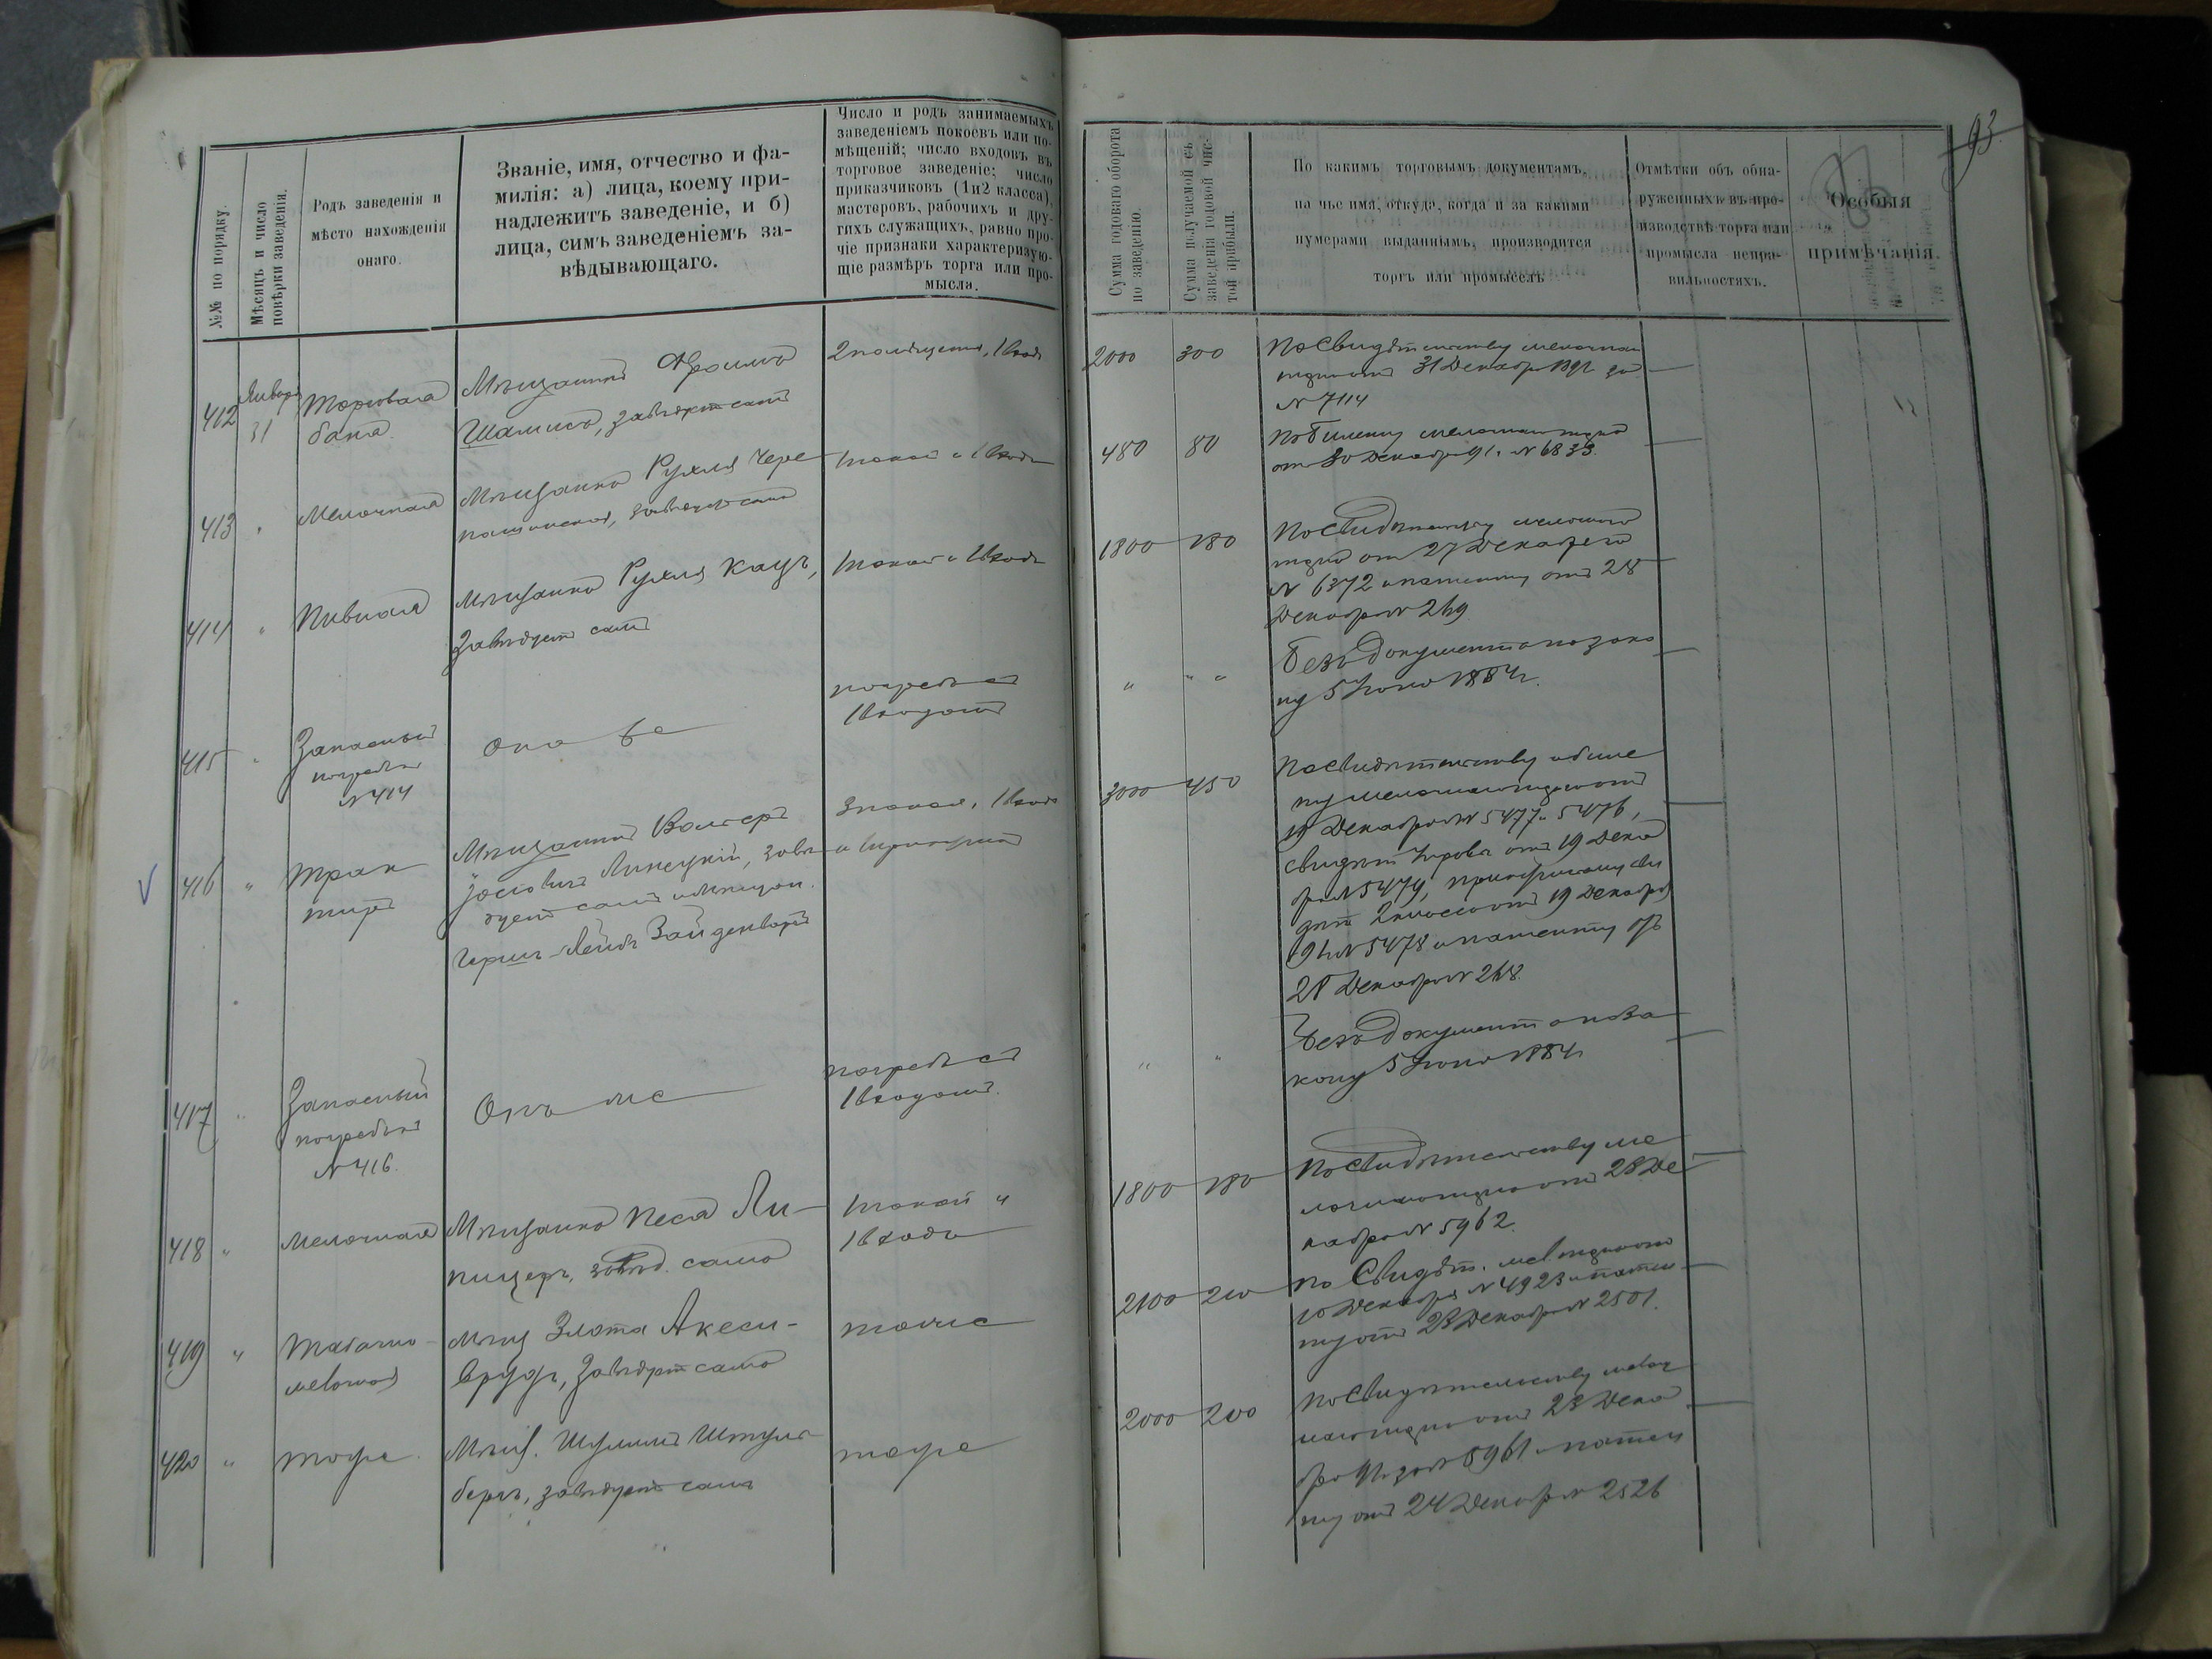 93
№№ по порядку.
Мѣсяцъ и число
повѣрки заведенія.
Родъ заведенія и
мѣсто нахожденія
онаго.
Званіе, имя, отчество и фа-
милія: а) лица, коему при-
надлежитъ заведеніе, и б)
лица, симъ заведеніемъ за-
вѣдывающаго.
Число и родъ занимаемыхъ
заведеніемъ покоевъ или по-
мѣщеній; число входовъ въ
торговое заведеніе; число
приказчиковъ (1 и 2 класса),
мастеровъ, рабочихъ и дру-
гихъ служащихъ, равно про-
чіе признаки характеризую-
щіе размѣръ торга или про-
мысла.
Сумма годоваго оборота
по заведенію.
Сумма получаемой съ
заведенія годовой чис-
той прибыли.
По какимъ торговымъ документамъ,
на чье имя, откуда, когда и за какими
нумерами выданнымъ, производится
торгъ или промыселъ
Отмѣтки объ обна-
руженныхъ въ про-
изводствѣ торга или
промысла непра-
вильностяхъ.
Особыя
примѣчанія.
412
Января
31
Торговая
баня
Мѣщанинъ Фроимъ
завѣдуетъ самъ
2 помѣщенія, 1 входъ
2000
300
По свидѣтельству мелочнаго
31 Декабря
№ 7114
413
Мелочная
Мѣщанка Рухля Чере
завѣдуетъ сама
1 покой и 1 входъ
480
80
По билету мелочнаго торга
от 30 Декабря 91 г. № 6833.
414
Пивная
Мѣщанка Рухля Кацъ,
Завѣдуетъ сама
1 покой и 1 входъ
1800
180
По свидѣтельству мелочнаго
торга от 27 Декабря
№ 6372 и патенту отъ 28
Декабря № 269
415
Запасный
погребъ
№ 414
Она же
погребъ съ
1 входомъ
Безъ документа по зако
ну 5 Іюня 1884 г.
416
Трак
тиръ
Мѣщанинъ Волько
Липецкій, завѣ
дуетъ самъ и мѣщан.
Герш-Лейбъ Зайденваргъ
3 покоя, 1 входъ
3000
450
По свидѣтельству и биле
ту мелочнаго торга отъ
19 Декабря № 5477 и 5476,
свидѣт. отъ 19 Дека
бря № 5479, приказчичьему сви
дѣт. 2 класса отъ 19 Декабря
91 г. № 5478 и патенту отъ
28 Декабря № 268.
417
Запасный
погребъ
№ 416.
Онъ же
погребъ съ
1 входомъ.
Безъ документа по за
кону 5 Іюня 1884 г.
418
Мелочная
Мѣщанка Песя Ли-
пицеръ, завѣд. сама
1 покой и
1 входъ
1800
180
По свидѣтельству ме
лочнаго торга отъ 28 Де
кабря № 5962.
419
Табачно-
мелочная
Мѣщ. Злота Аксель-
врудъ, завѣдуетъ сама
тоже
2100
210
По свидѣт. мел. торга отъ
10 Декабря № 4923 и патен
ту отъ 23 Декабря № 2501.
420
тоже
Мѣщ. Шулимъ Штуль-
бергъ, завѣдуетъ самъ
тоже
2000
200
По свидѣтельству мелоч
наго торга отъ 23 Дека
бря 91 г. за № 5961 и патен
ту отъ 24 Декабря № 2526